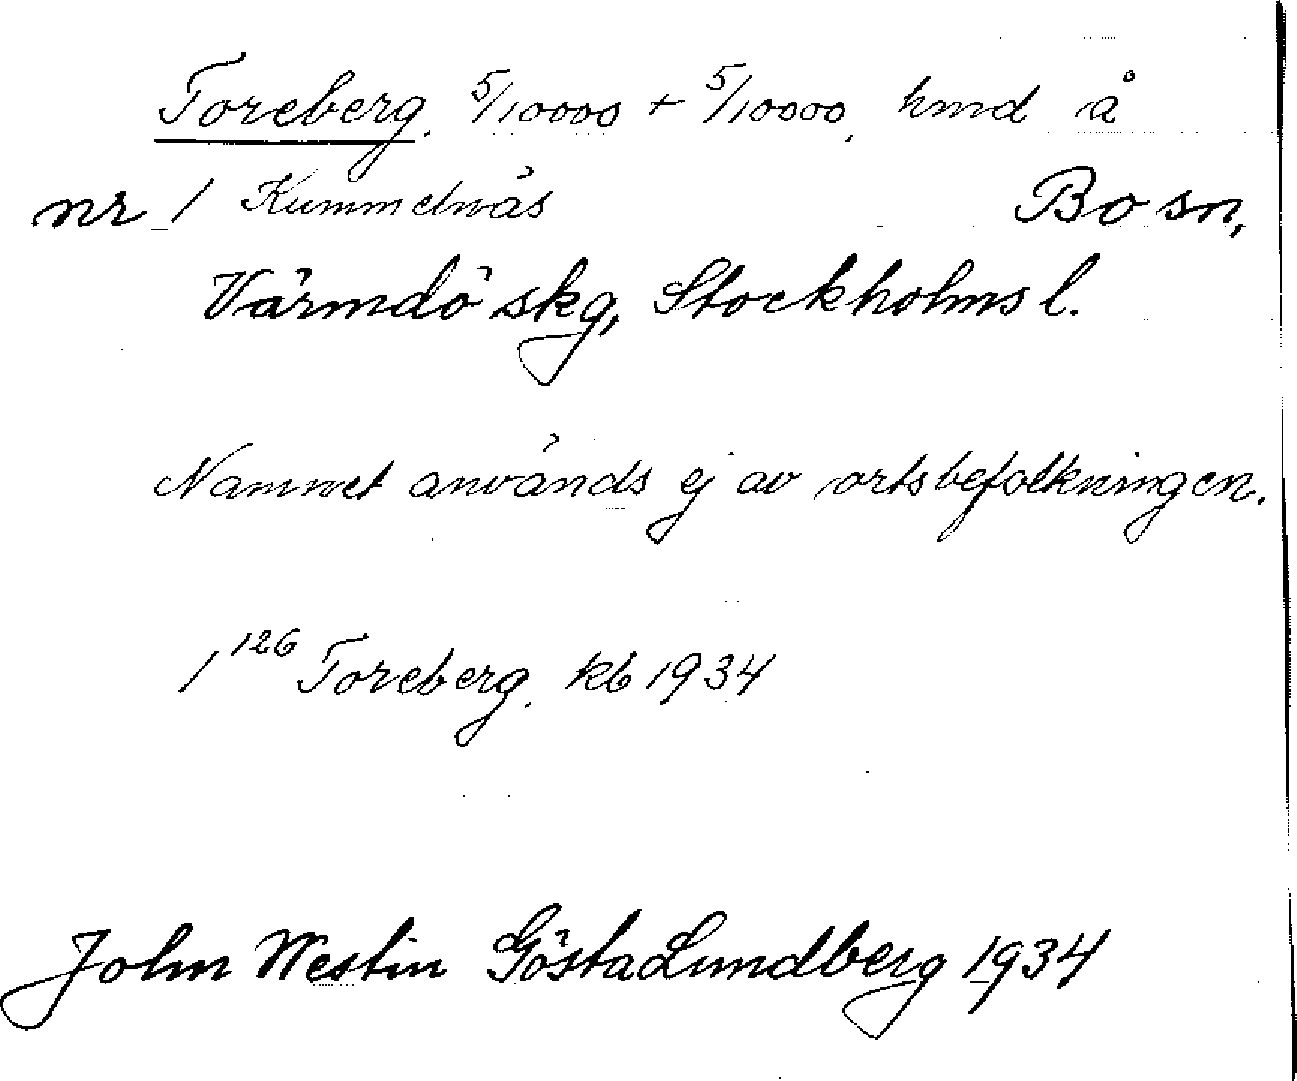 Toreberg. 5/10000 + 5/10000, hmd å
nr 1 Kummelnäs Bo sn,
Värmdö skg, Stockholms l.
Namnet används ej av ortsbefolkningen.
1¹²⁶ Toreberg. kb 1934
John Westin Gösta Lundberg 1934